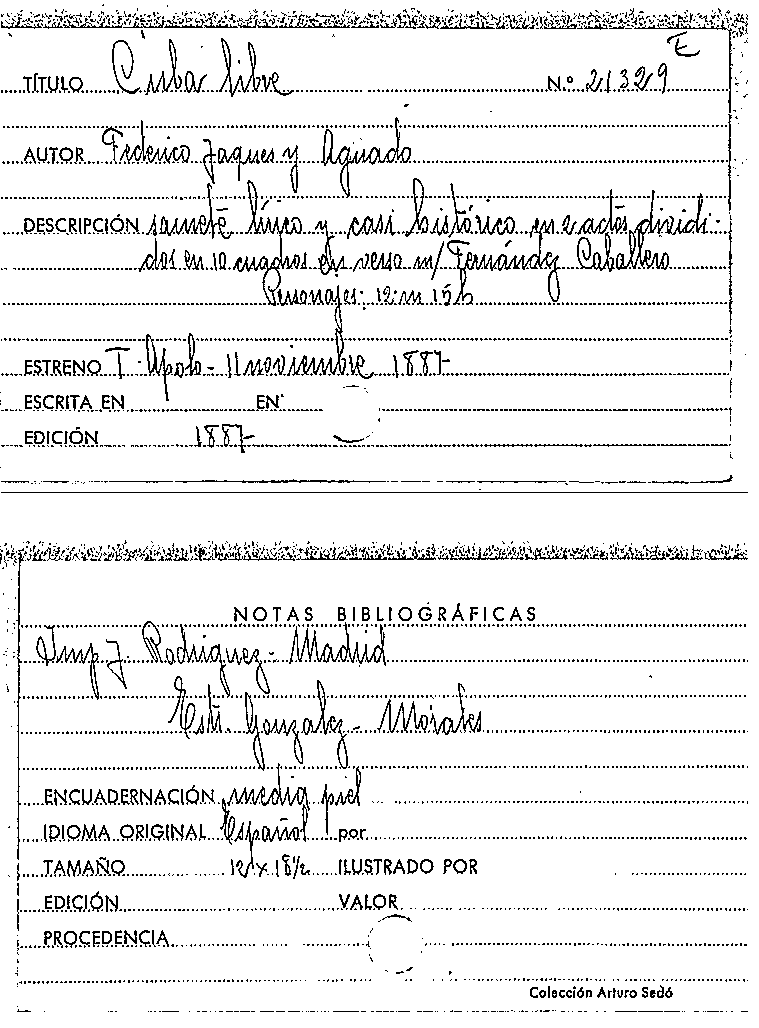 E
TÍTULO Cuba libre N.º 21329
AUTOR Federico Jaques y Aguado
DESCRIPCIÓN sainete lírico y casi histórico en 2 actos dividi-
dos en 10 cuadros en verso m/ Fernández Caballero
Personajes: 12 m 15 h
ESTRENO T. Apolo - 11 noviembre 1887
ESCRITA EN EN
EDICIÓN 1887
NOTAS BIBLIOGRÁFICAS
Imp J. Rodriguez - Madrid
Estr. Gonzalez - Morales
ENCUADERNACIÓN media piel
IDIOMA ORIGINAL Español por
TAMAÑO 12 x 18½ ILUSTRADO POR
EDICIÓN VALOR
PROCEDENCIA
Colección Arturo Sedó